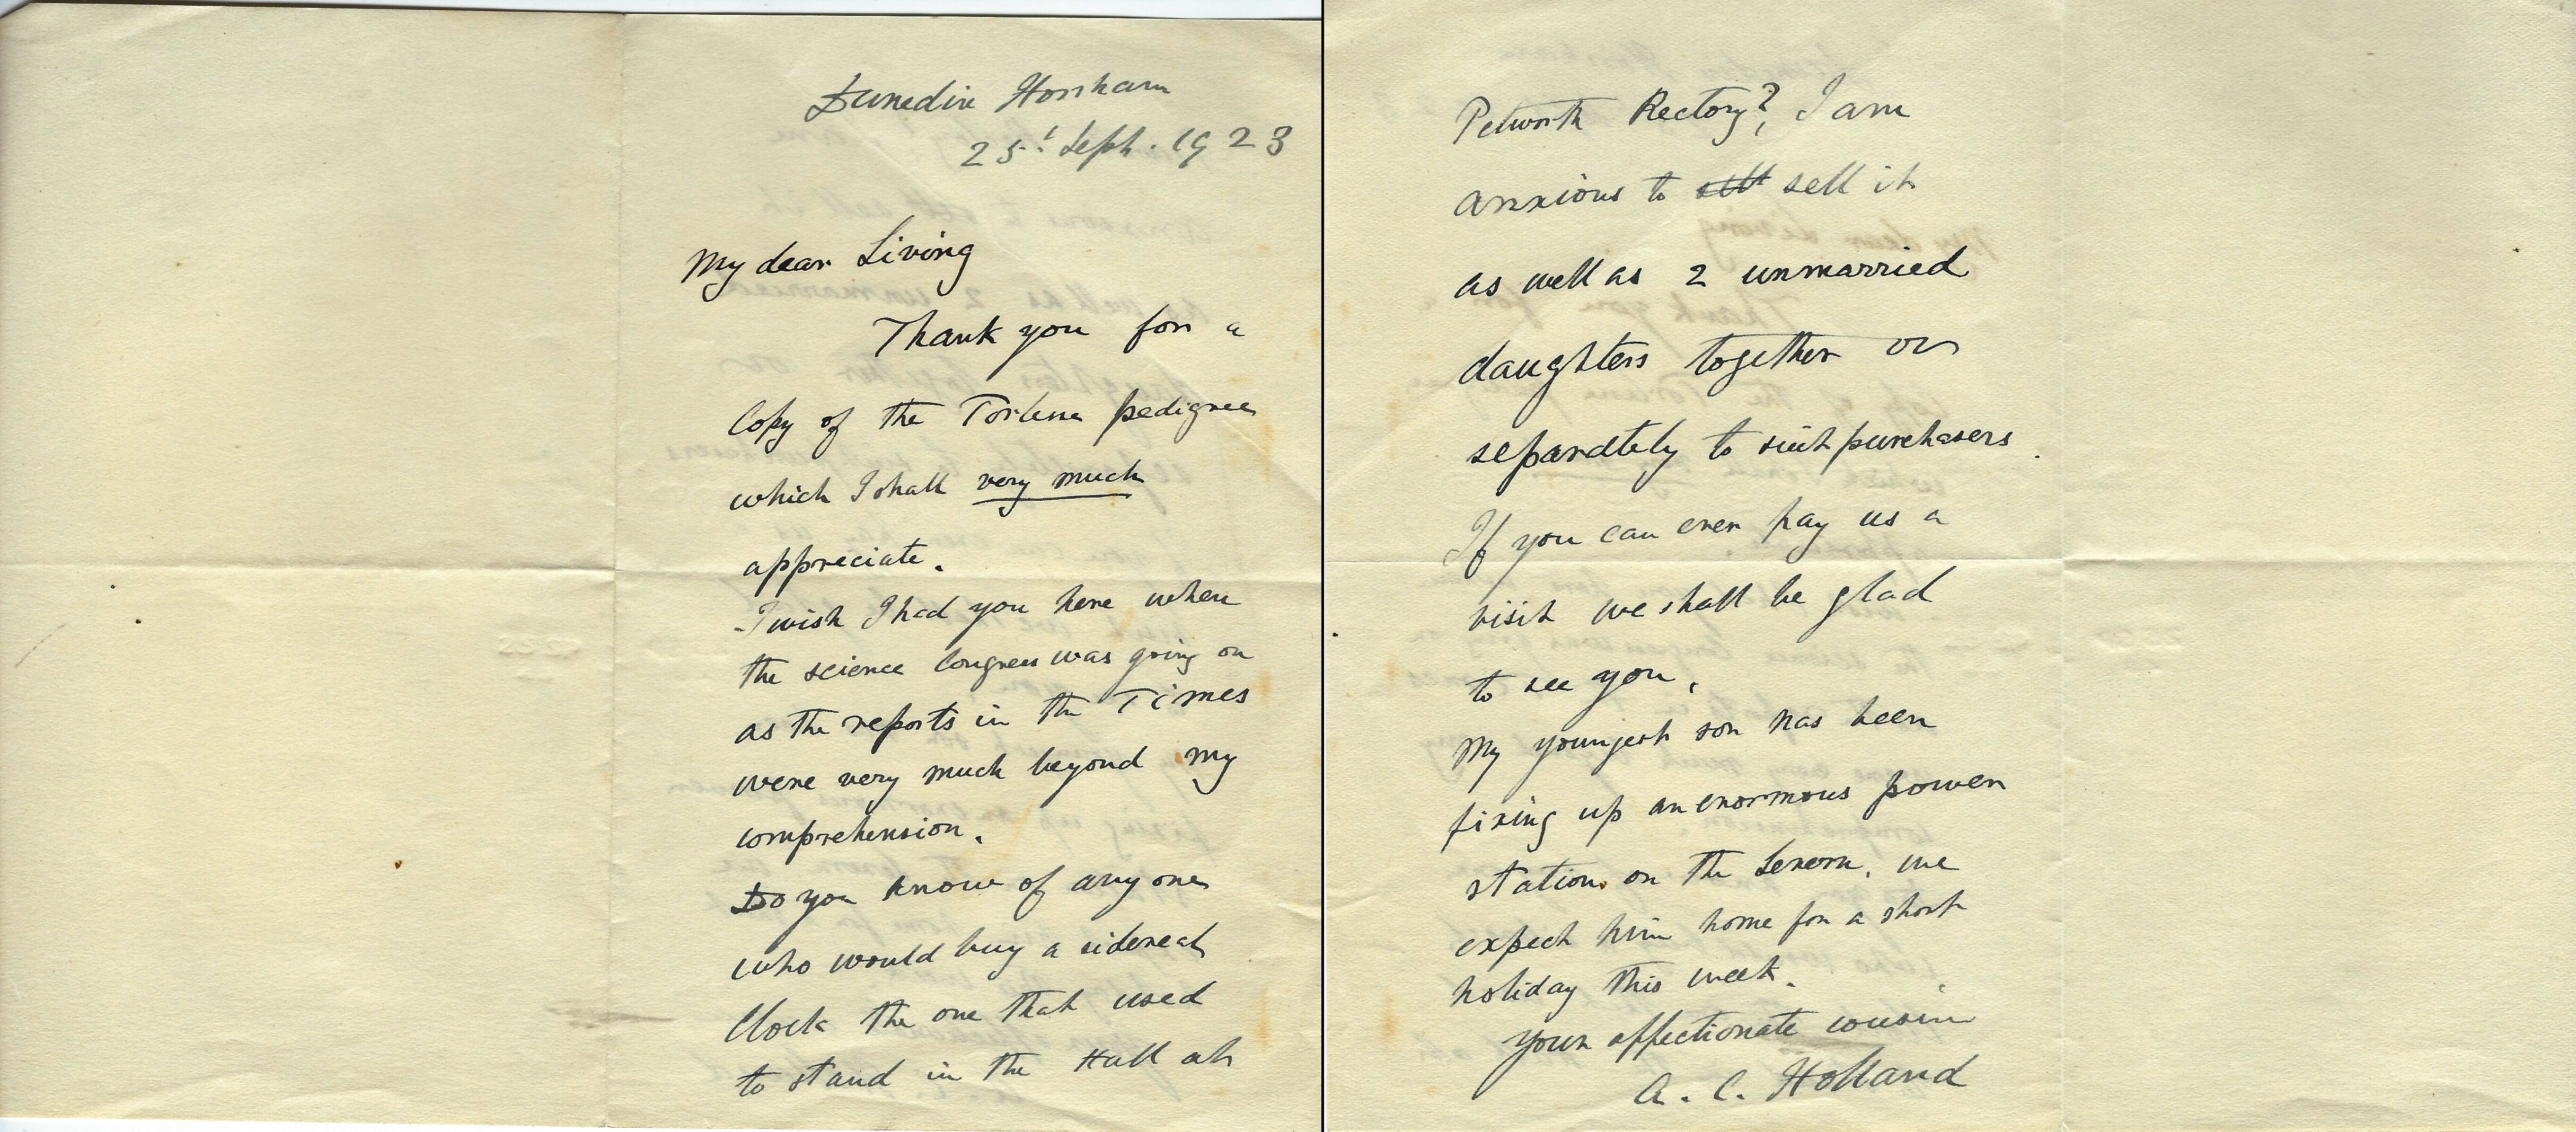 Dunedin Horsham
25! Sept. 1923
My dear Living
Thank you for a
Copy of the Torlesse pedigree
which I shall very much
appreciate.
I wish I had you here when
the science Congress was going on
as the reports in the Times
were very much beyond my
comprehension.
Do you know of any one
who would buy a sidereal
Clock the one that used
to stand in the Hall at
Petworth Rectory?, I am
anxious to sell it
as well as 2 unmarried
daughters together or
separately to suit purchasers.
If you can ever pay us a
visit we shall be glad
to see you.
My youngest son has been
fixing up an enormous power
station on the Severn, we
expect him home for a short
holiday this week.
your affectionate cousin
A. C. Holland